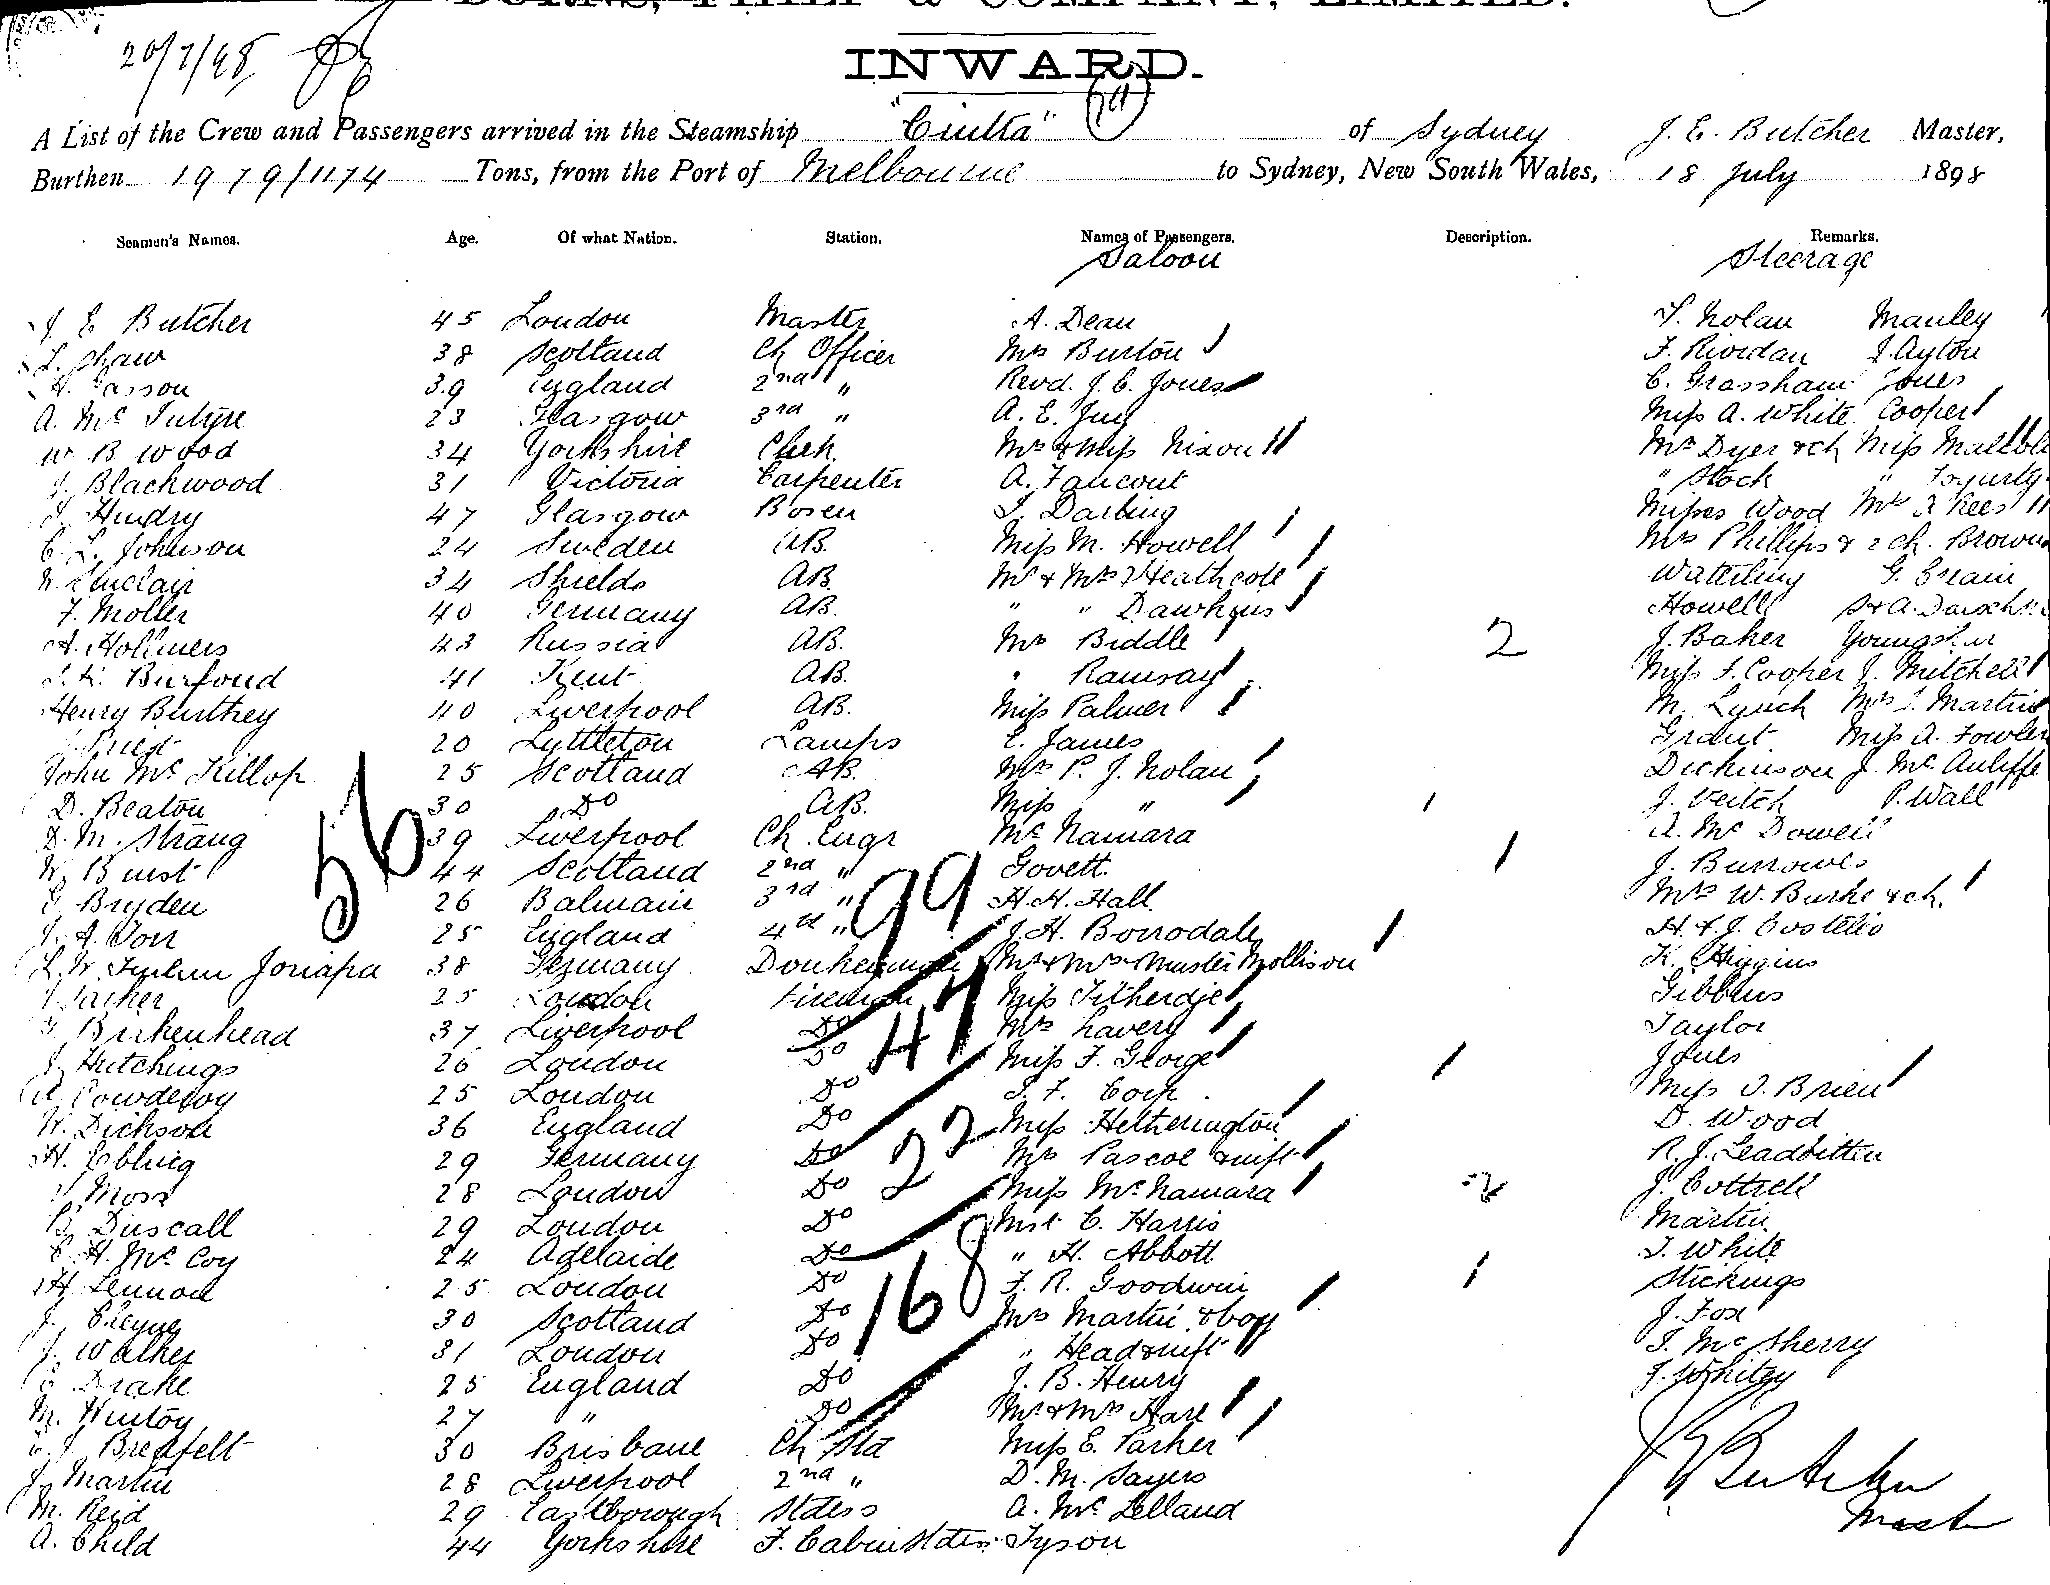 BURNS, PHILP & COMPANY, LIMITED.
20/7/98
INWARD.
A List of the Crew and Passengers arrived in the Steamship "Cintra" of Sydney J. E. Butcher Master,
Burthen 1979/1174 Tons, from the Port of Melbourne to Sydney, New South Wales, 18 July 1898
Seamen's Names. Age. Of what Nation. Station. Names of Passengers. Description. Remarks.
Saloon Steerage
J E Butcher 45 London Master A. Dean T. Nolan Manley
L. Shaw 38 Scotland Ch Officer Mrs Burton F. Riordan J. Ayton
39 England 2nd " Revd. J. C. Jones C. Grassham Jones
A. Mc Intyre 23 Glasgow 3rd " A. E. Miss A. White Cooper
W B Wood 34 Yorkshire Clerk Mr & Miss Nixon Mrs Dyer & ch Miss
J. Blackwood 31 Victoria Carpenter A. Faucout " Stock " Fogurty
Hendry 47 Glasgow Bosen Darling Misses Wood Mr Rees
C. L. Johnson 24 Sweden AB. Miss M. Howell Mrs Phillips & 2 ch. Brown
Sinclair 34 Shields AB. Mr & Mrs Heathcote Watterling G. Crain
F. Moller 40 Germany AB. " " Dawkins Howell
A. Hollmers 43 Russia AB. Mrs Biddle 2 J. Baker
Burfoud 41 Kent AB. " Ramsay Miss F. Cooper J. Mitchell
Henry Burthey 40 Liverpool AB. Miss Palmer M. Lynch Mrs J. Martin
20 Lyttleton Lamps E. James Grant Miss A. Fowler
John Mc Killop 25 Scotland AB. Mrs P. J. Nolan Dickinson J. Mc Auliffe
D. Beaton 30 Do AB. Miss " J. Veitch P. Wall
D. M. Strang 39 Liverpool Ch. Engr Mc Namara A. Mc Dowell
56
W. Buist 44 Scotland 2nd " Govett J. Burrowes
G. Bryden 26 Balmain 3rd " H. H. Hall Mrs W. Burke & ch.
99
25 England 4th " J. H. Borrodale H. & J. Costello
38 Germany Donkeyman Mr & Mrs & Master Mollison K. Higgins
25 London Fireman Miss Gibbins
Birkenhead 37 Liverpool Do Mrs Lavery Taylor
47
J. Hutchings 26 London Do Miss F. George Jones
A. Cowderoy 25 London Do Miss O. Brien
W. Dickson 36 England Do Miss Hetherington D. Wood
22
H. Ebling 29 Germany Do Mrs Pascoe & inft R. J. Leadbitter
Moss 28 London Do Miss Mc Namara J. Cottrell
Duscall 29 London Do Mst C. Harris Martin
C. H. Mc Coy 24 Adelaide Do " H. Abbott T. White
H. Lennox 25 London Do F. R. Goodwin Stickings
168
J. Cheyne 30 Scotland Do Mrs Martin & boy J. Fox
J. Walker 31 London Do " Head & inft T. Mc Sherry
Drake 25 England Do J. B. Henry J. Whitey
M. Hinton 27 " Do Mr & Mrs Hare
Bredfelt 30 Brisbane Ch Std Miss E. Parker
J. Martin 28 Liverpool 2nd " D. M. Sayers
M. Reid 29 Eastborough Stdess A. Mc Lelland
A. Child 44 Yorkshire F. Cabin Stdess Tyson
J E Butcher
Master